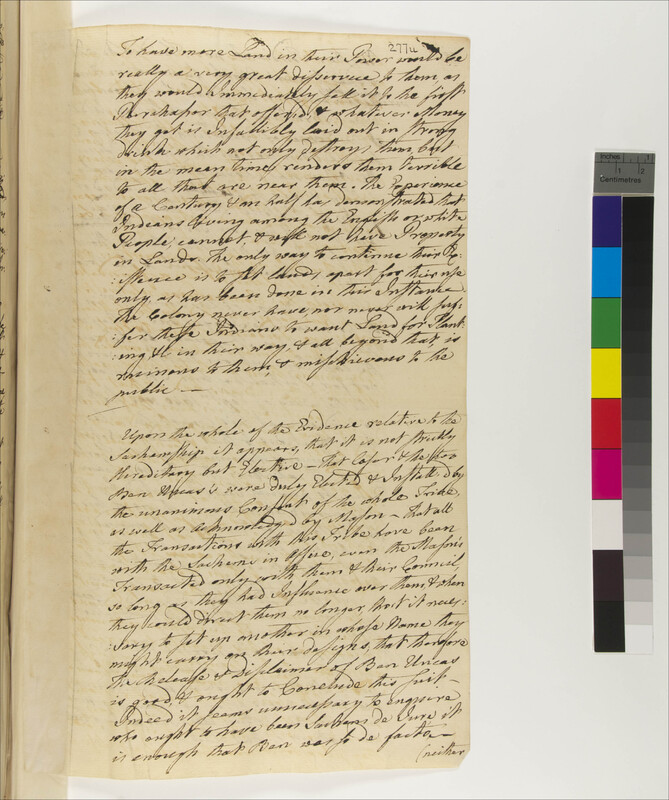 277a
To have more Land in their Power would be
really a very great disservice to them, as
they would immediately sell it to the first
Purchasor that offered, & whatever Money
they get is Infallibly laid out in strong
drink which not only destroys them, but
in the mean time renders them terrible
to all that are near them. The Experience
of a Century & an half has demonstrated that
Indians living among the English or white
People, cannot, & will not have Property
in Lands. The only way to continue their Ex:
:istence is to set lands apart for their use
only, as has been done in this Instance
the Colony never have, nor never will suf:
fer these Indians to want Land for Plant:
:ing &c in their way, & all beyond that is
ruinous to them, & mischievous to the
public —
Upon the whole of the Evidence relative to the
Sachemship it appears, that it is not strictly
Hereditary but Elective — that Cesar & the two
Ben Uncas's were duly Elected & Installed by
the unanimous Consent of the whole Tribe,
as well as acknowledged by Mason — that all
the Transactions with this Tribe have been
with the Sachems in Office, even the Masons
Transacted only with them & their Council,
so long as they had Influence over them, & when
they could direct them no longer tho't it neces:
:sary to set up another in whose Name they
might carry on their designs, that therefore
the Release & Disclaimer of Ben Uncas
is good, & ought to Conclude this Suit —
Indeed it seems unnecessary to enquire
who ought to have been Sachems de Jure, it
is enough that Ben was so de facto —
(neither
inches 1 2
Centimetres